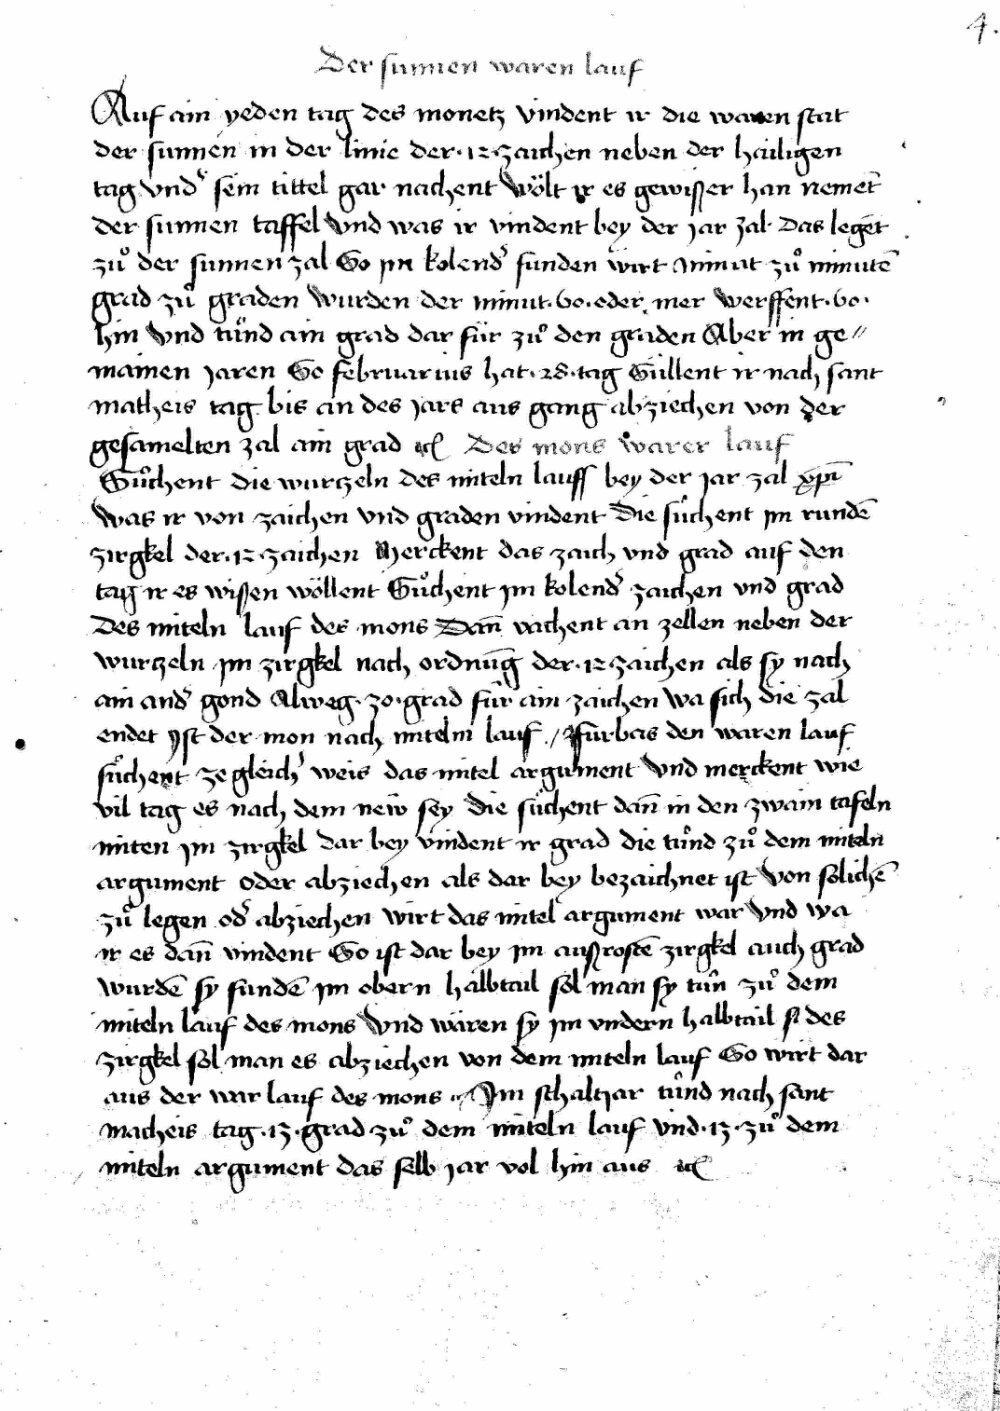 4.
Der sunnen waren lauf
Auf ain yeden tag des monetz vindent ir die waren stat
der sunnen in der linie der ·12· zaichen neben der hailigen
tag vnd' sein tittel gar nachent Wölt ir es gewißer han nemet
der sunnen taffel Vnd was ir vindent bey der jar zal Das leget
zuͦ der sunnen zal So jm kolend' funden wirt Minut zuͦ minutē
grad zuͦ graden Wurden der minut ·60· oder mer werffent ·60·
hin Vnd tuͤnd ain grad dar für zuͦ den graden Aber in ge〃
mainen jaren So februarius hat ·28· tag Süllent ir nach sant
matheis tag bis an des jars aus gang abziechen von der
gesamelten zal ain grad ⁊c Des mons warer lauf
Suͦchent die wurtzeln des miteln lauff bey der jar zal xp̄i
Was ir von zaichen vnd graden vindent Die suͦchent jm rundē
zirgkel der ·12· zaichen Merckent das zaich vnd grad auf den
tag ir es wißen wöllent Suͦchent jm kolend' zaichen vnd grad
Des miteln lauf des mons Dan̄ vachent an zellen neben der
wurtzeln jm zirgkel nach ordnūg der ·12· zaichen als sy nach
ain and' gond Alweg ·30· grad für ain zaichen wa sich die zal
endet Jst der mon nach miteln lauf / Fürbas den waren lauf
suͦchent ze gleich' weis das mitel argument Vnd merckent wie
vil tag es nach dem new sey Die suͦchent dan̄ in den zwain tafeln
miten jm zirgkel dar bey vindent ir grad die tuͤnd zuͦ dem miteln
argument oder abziechen als dar bey bezaichnet ist Von solichē
zuͦ legen od' abziechen wirt das mitel argument war Vnd wa
ir es dan̄ vindent So ist dar bey jm außrostē zirgkel auch grad
wurdē sy fundē jm obern halbtail sol man sy tuͤn zuͦ dem
miteln lauf des mons Vnd wären sy jm vndern halbtail des
zirgkel sol man es abziechen von dem miteln lauf So wirt dar
aus der war lauf des mons Jm schaltjar tuͤnd nach sant
matheis tag ·13· grad zuͦ dem miteln lauf vnd ·13· zuͦ dem
miteln argument das selb jar vol hin aus ⁊c